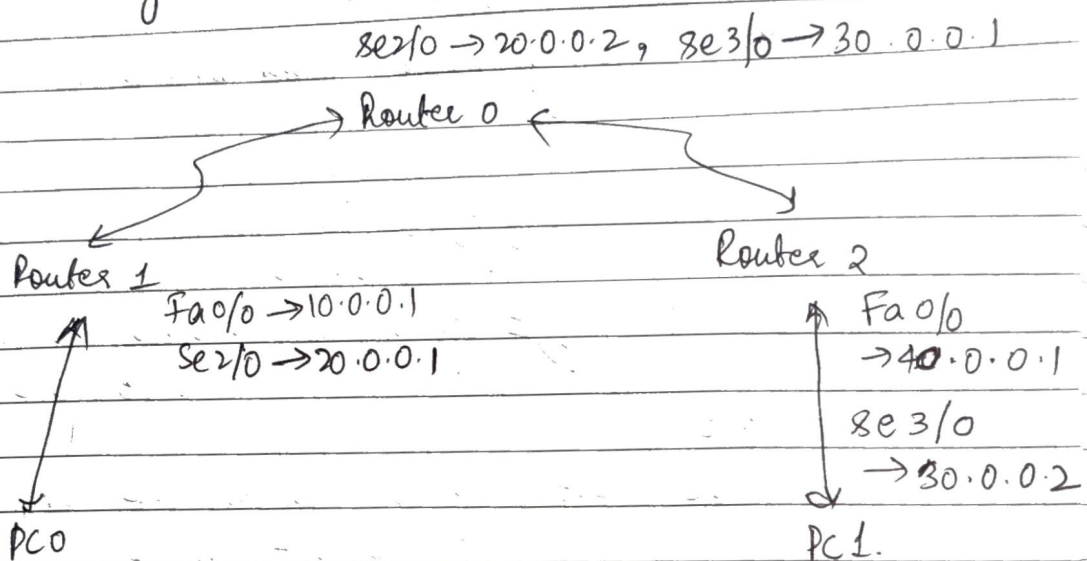 se2/0 → 20.0.0.2, se3/0 → 30.0.0.1
Router 0
Router 1
Fa0/0 → 10.0.0.1
Se2/0 → 20.0.0.1
Router 2
Fa0/0
→ 40.0.0.1
se3/0
→ 30.0.0.2
PC0
PC1.